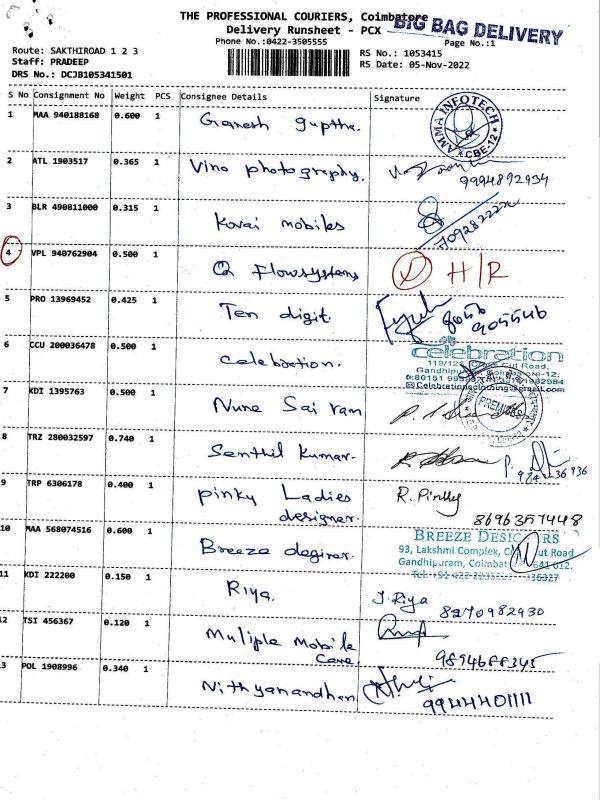 THE PROFESSIONAL COURIERS, Coimbatore
BIG BAG DELIVERY
Delivery Runsheet - PCX
Phone No.:0422-3505555
Page No.:1
Route: SAKTHIROAD 1 2 3
RS No.: 1053415
Staff: PRADEEP
RS Date: 05-Nov-2022
DRS No.: DCJB105341501
S No Consignment No Weight PCS Consignee Details Signature
1 MAA 940188168 0.600 1 Ganesh guptha.
AMMA INFOTECH
CBE-12
2 ATL 1903517 0.365 1 Vino photography.
9994892934
3 BLR 490811000 0.315 1 Kovai mobiles
4 VPL 940762904 0.500 1 Q Flowsystems H/R
5 PRO 13969452 0.425 1 Ten digit.
6 CCU 200036478 0.500 1 Celebration.
celebration
7 KDI 1395763 0.500 1 Nune Sai ram
PREMIER
8 TRZ 280032597 0.740 1 Senthil Kumar.
9 TRP 6306178 0.400 1 Pinky Ladies designer. R. Pinky
8696357448
10 MAA 568074516 0.600 1 Breeze deginer.
BREEZE DESIGNERS
93, Lakshmi Complex, Cut Road
Gandhipuram, Coimbat 641 012.
11 KDI 222200 0.150 1 Riya. J. Riya
8270982930
12 TSI 456367 0.120 1 Muliple Mobile Care
13 POL 1908996 0.340 1 Nithyanandhan
9944401111